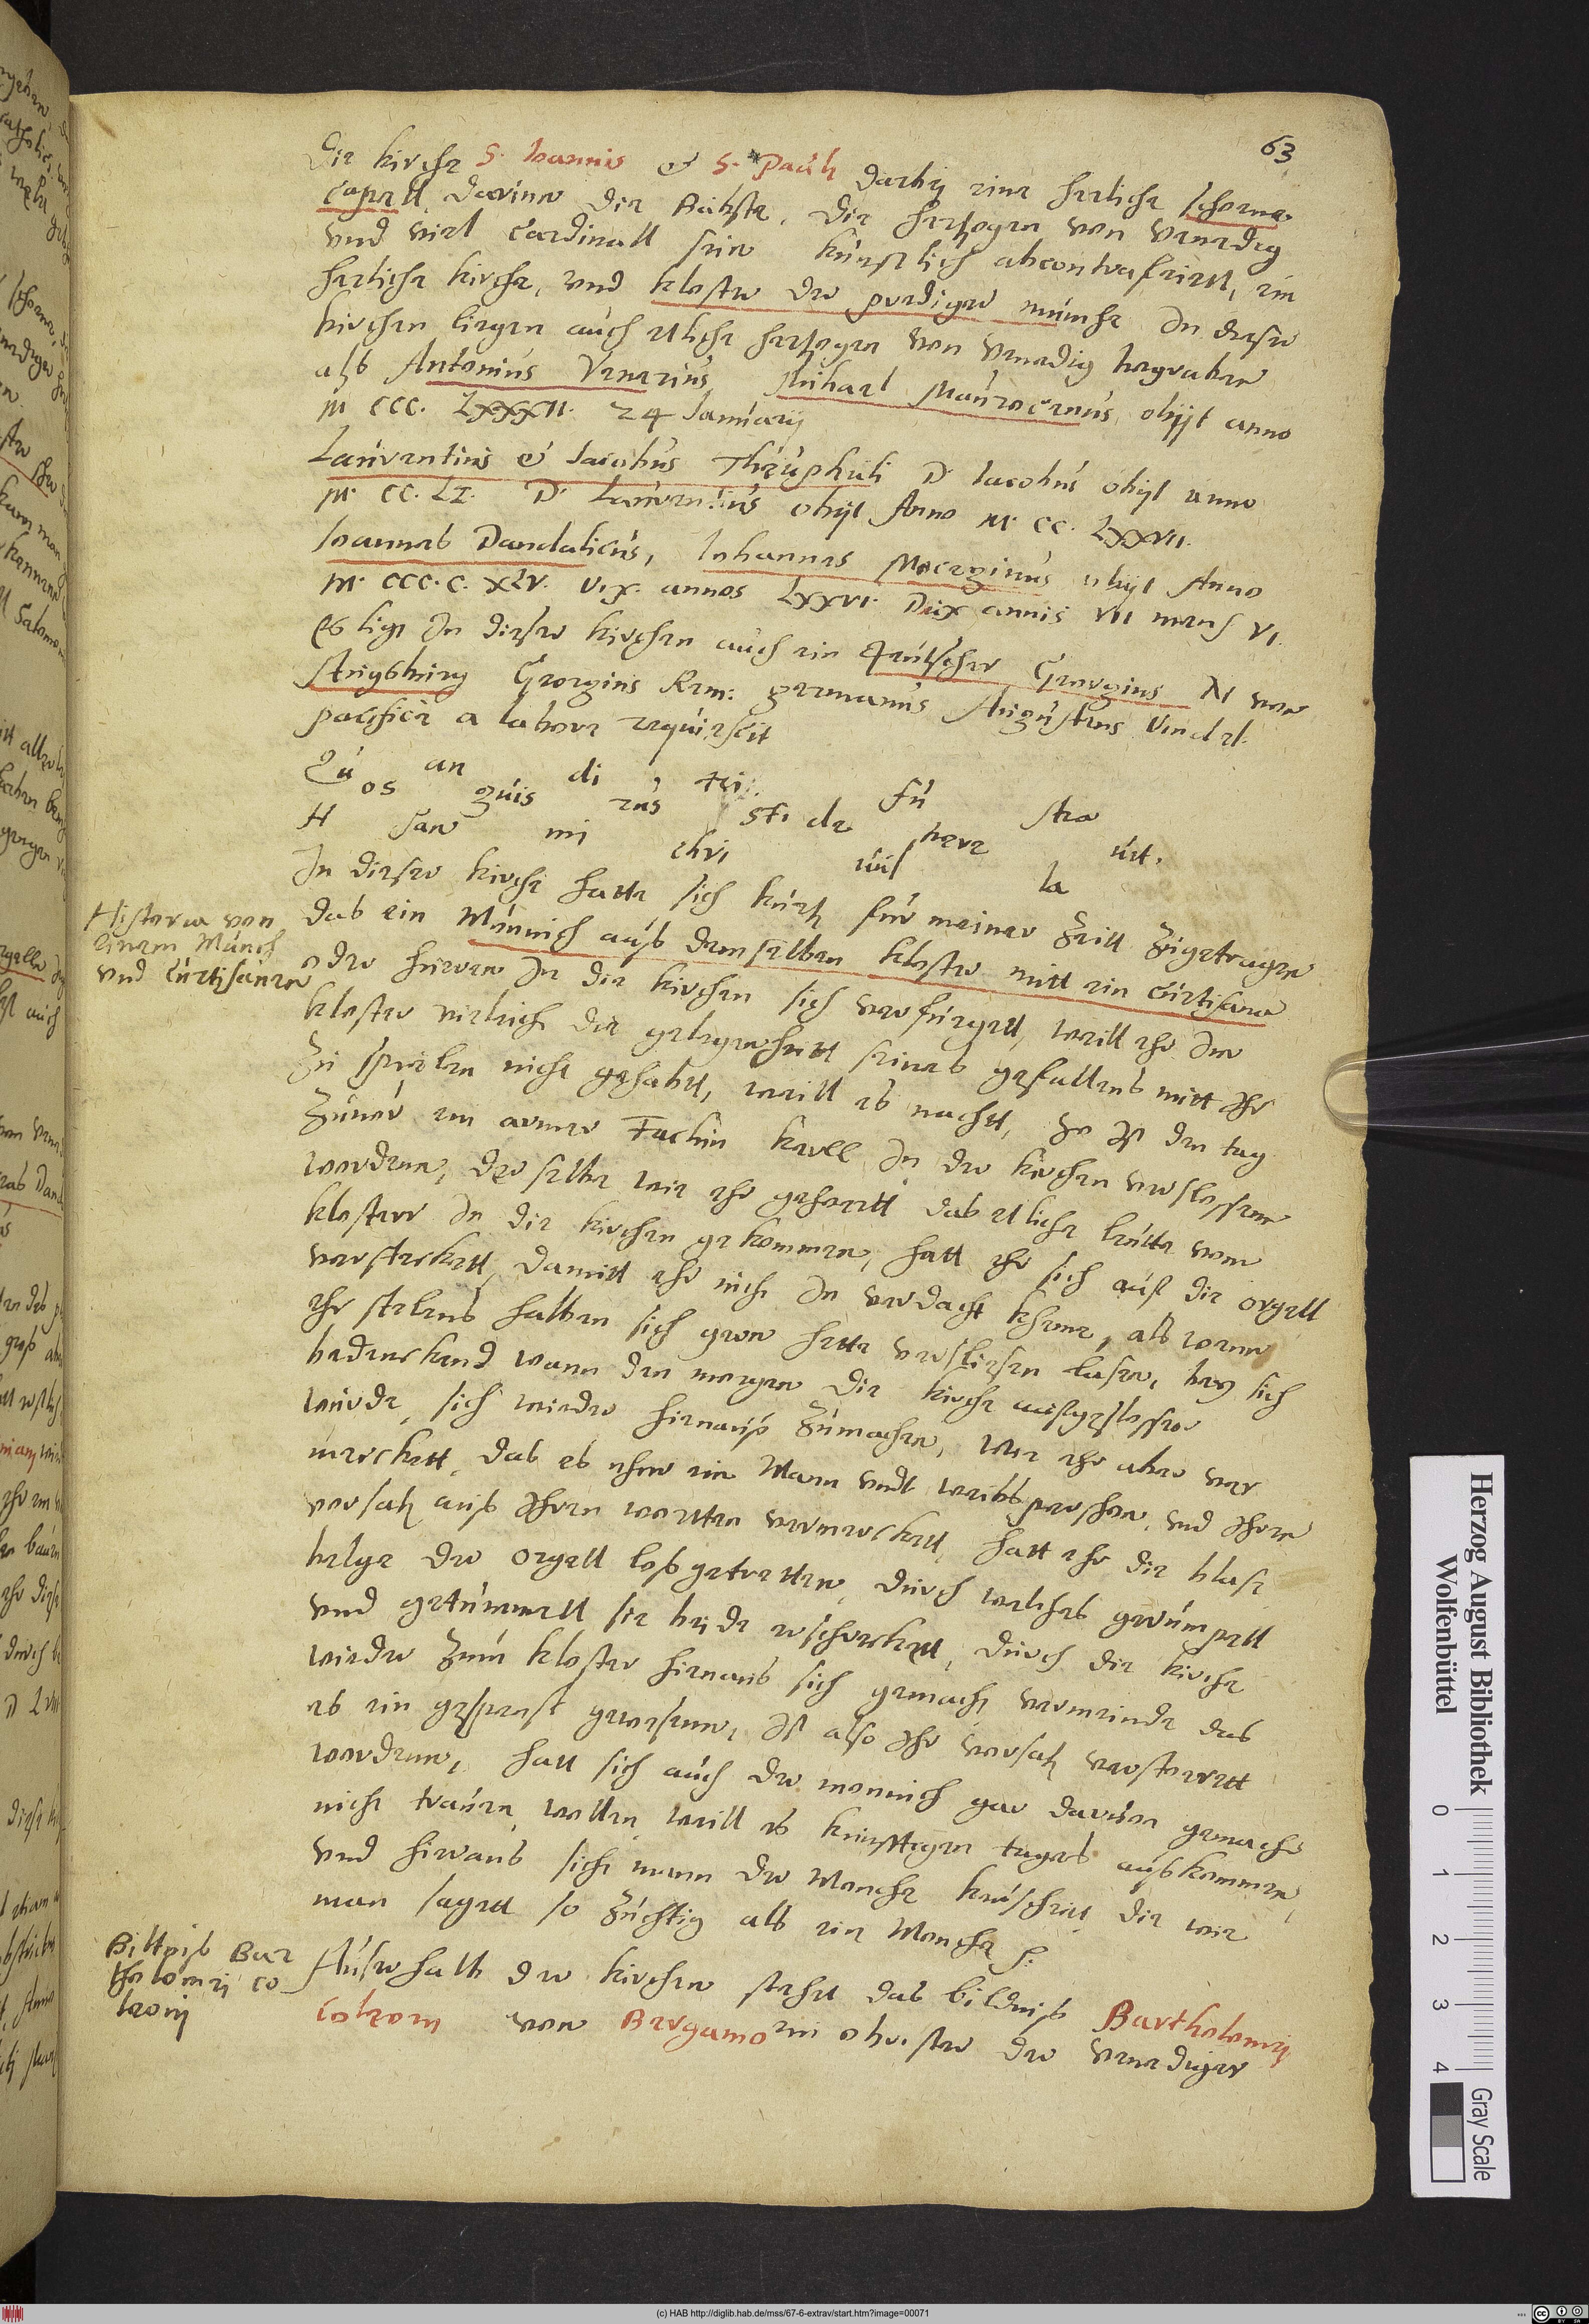 63
Die kirche S. Ioannis et S. Pauli darbij eine herliche schoene
Capell, darinne die Bäbste, die hertzogen von Venedig
und viel Cardinall sein künstlich abcontrafeiett, ein
herliche kirche, und kloster der prediger münche In dieser
kirchen liegen auch etliche hertzogen von Venedig begraben
alß Antonius Venerius, Michael Maurocenus obijt anno
M CCC. LXXXII. 24 Ianuarij
Laurentius et Iacobus Theuphuli D. Iacobus obijt anno
M. CC. LI. D. Laurentius obijt Anno M. CC. LXXVII.
Ioannes Dandalicus, Iohannes Mocenginus obijt Anno
M. CCC.C. XLV. Vix. annos LXXVI. Dux annis VII mens VI.
Es ligt In dieser kirchen auch ein Teutscher Georgius N von
Augsburg Georgius Rem: germanus Augustens Vindel.
pacifice a labore requiescit
Qu an di tri
os guis rus sti de fu stra
H san mi chri vul nere la ut.
In dieser kirche hatte sich kurtz für meiner Zeitt Zugetragen
das ein Münnich auß demselben kloster mitt ein Curtisane
Historia von
einem Münch
und Curtisanen
oder huren In die kirchen sich verfüegett, weill ehr Im
kloster vieleich die gelegenheitt seines gefallens mitt Ihr
Zu spielen nicht gehabt, weill es nacht, So Ist den tag
Zuuor ein armer Fachin kerll In der kirchen verslossen
worden, derselbe wie ehr gehorett das etliche leutte vom
kloster In die kirchen gekommen, hatt ehr sich auf die orgell
versteckett, damitt ehr nich In verdacht kehme, als wenn
ehr stelens halben sich gern hette versliesen lasen, bey sich
bedenckend wann den morgen die kirche aufgeslossen
würde, sich wieder hienauß Zumachen, wie ehr aber ver
merckett, das es eher ein Mann undt weibs pershon, und Ihren
vorsatz auß Ihren wortten vermerckett, hatt ehr die blase
belge der orgell losgetretten, durch welches gerümpell
und getümmell sie beide erschreckett, durch die kirche
wieder Zum kloster hienaus sich gemach vermeinde das
es ein gespenst gewesenn, Ist also Ihr vorsatz verstorett
wordenn, hatt sich auch der monnich gar daruon gemacht
nicht trauen wollen, weill es künfftigen tages außkommen
und hieraus sicht mann der Monche keuscheitt die wie
man sagett so Züchtig als ein Monche p.
Biltniß Bar
tholomei Co
leonij
Auserhalb der kirchen stehet das bildniß Bartholomej
Coleoni von Bergamo ein obrister der Venediger
Herzog August Bibliothek
Wolfenbüttel
0 1 2 3 4
Gray Scale
(c) HAB http://diglib.hab.de/mss/67-6-extrav/start.htm?image=00071